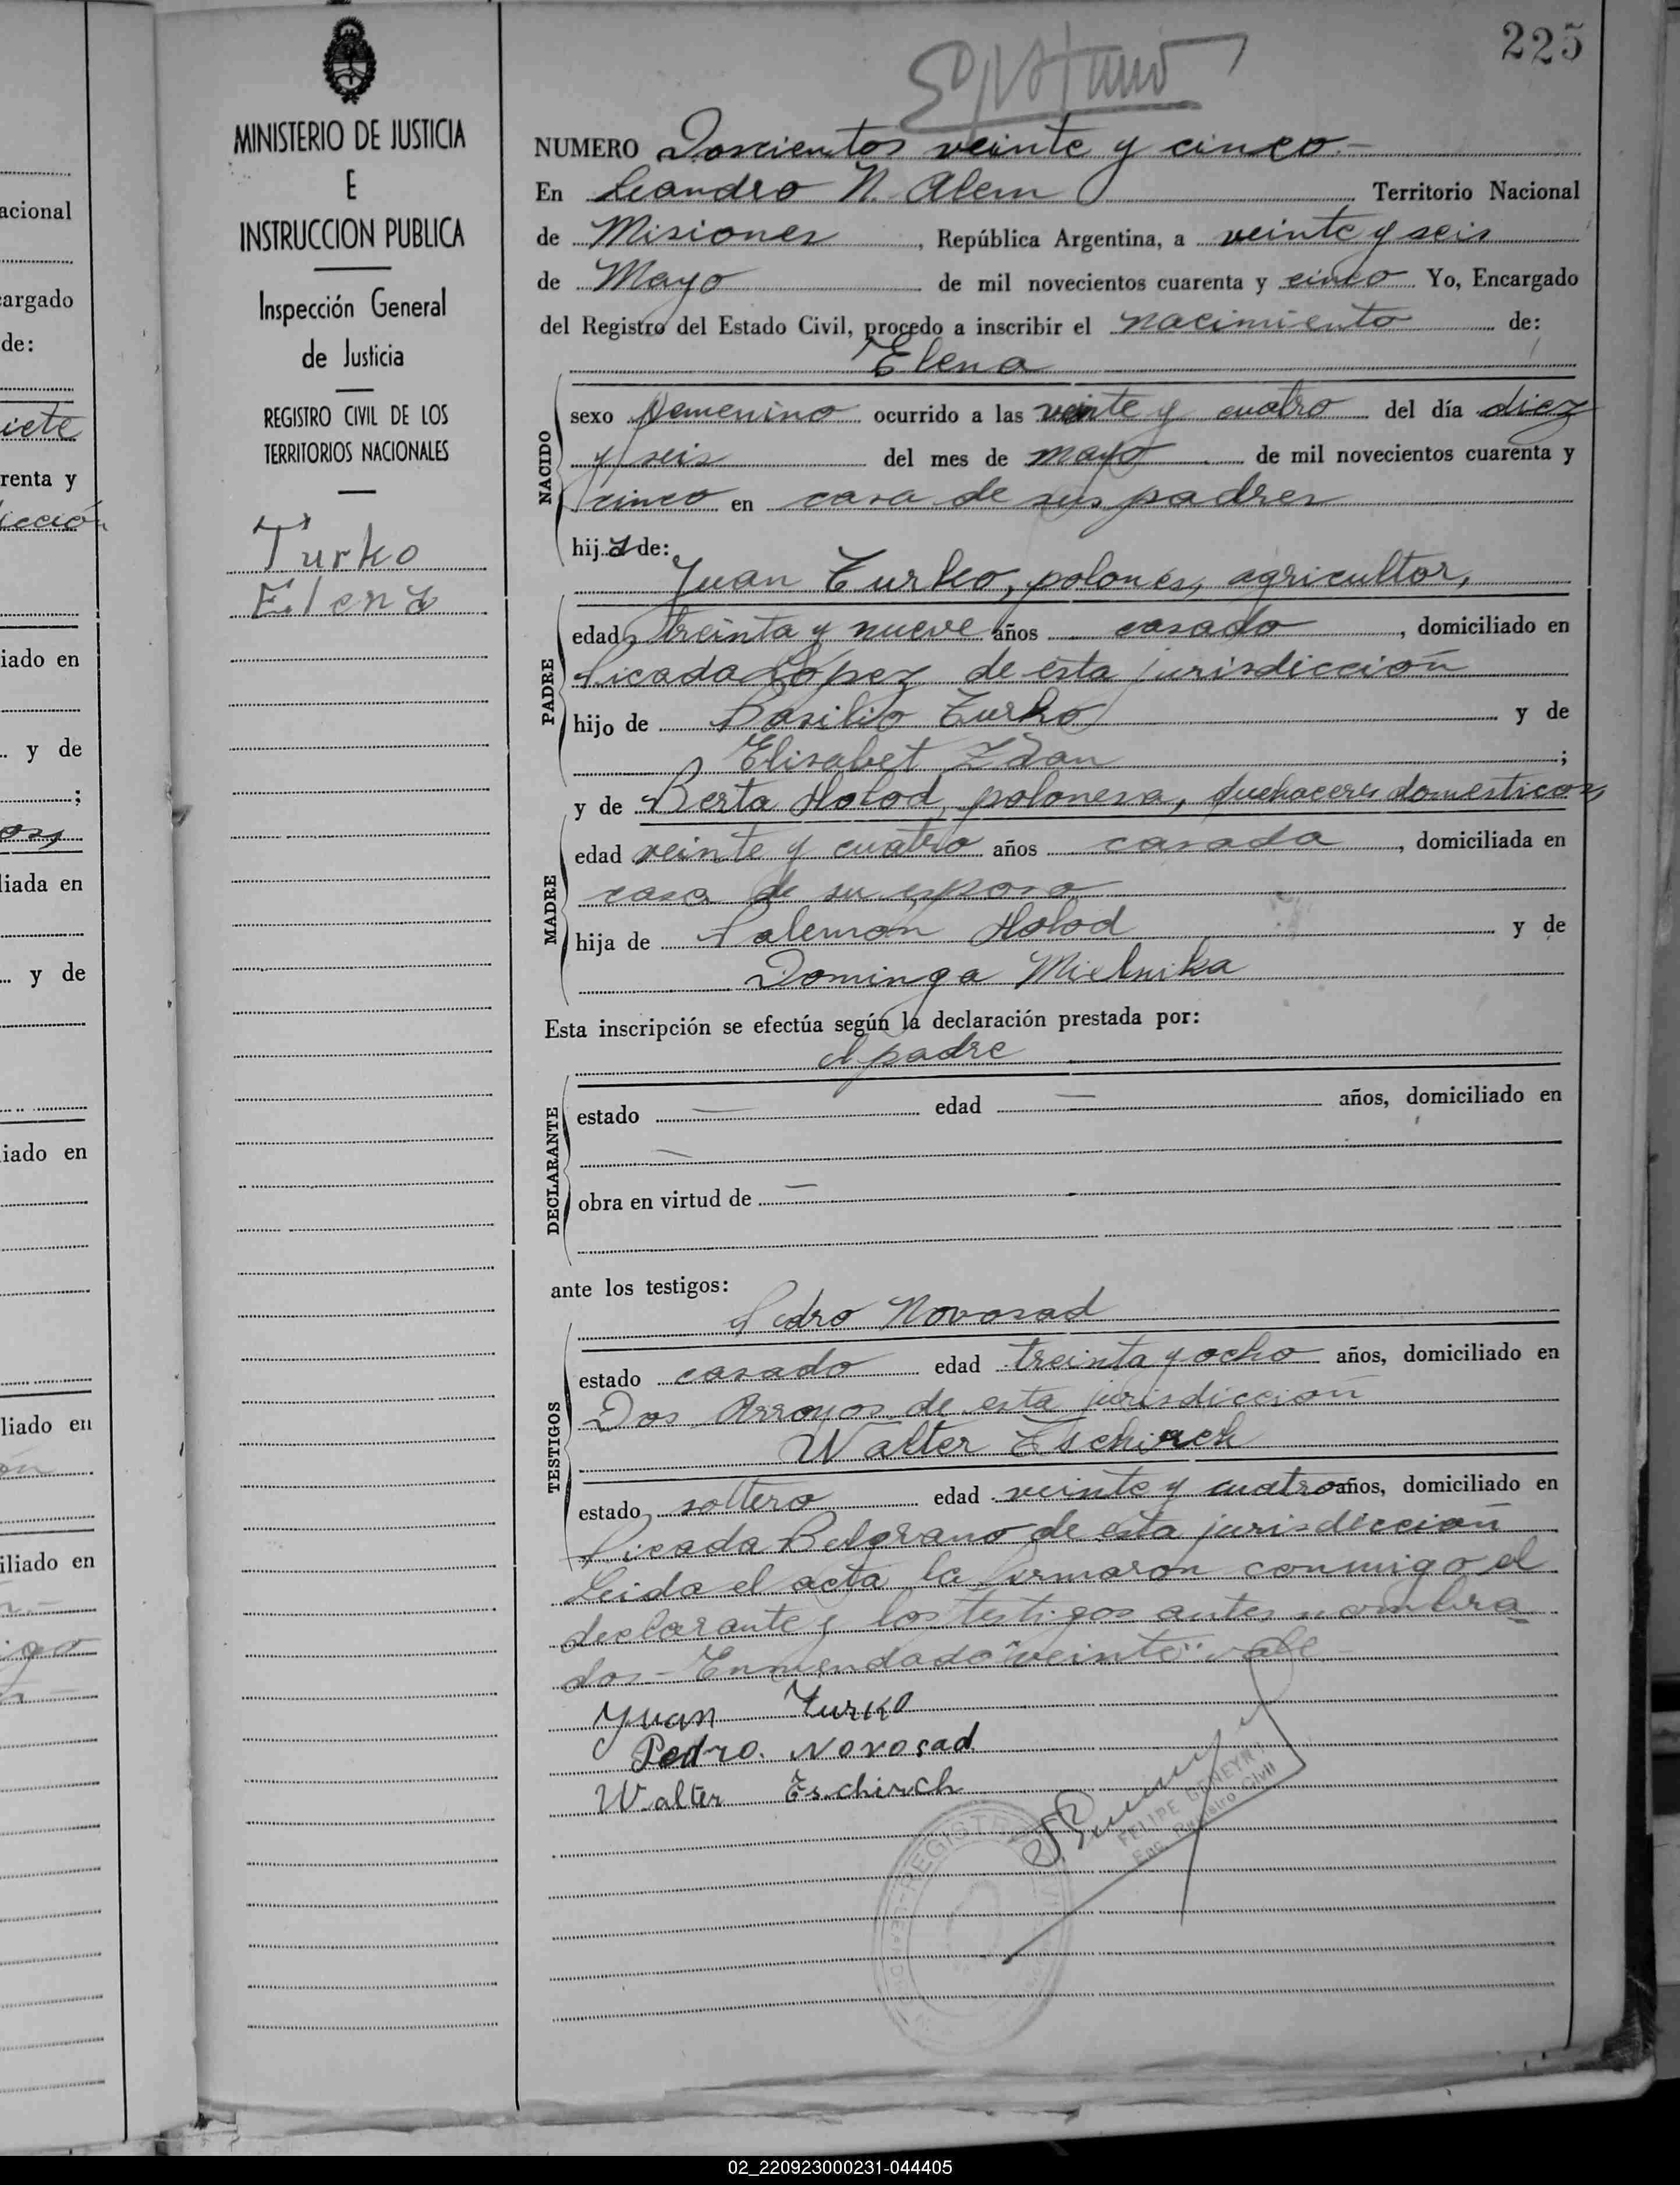 225
NUMERO Doscientos veinte y cinco.-
En Leandro N. Alem Territorio Nacional
de Misiones, República Argentina, a veinte y seis
de Mayo de mil novecientos cuarenta y cinco Yo, Encargado
del Registro del Estado Civil, procedo a inscribir el nacimiento de:
Elena
NACIDO
sexo femenino ocurrido a las veinte y cuatro del día diez
y seis del mes de mayo de mil novecientos cuarenta y
cinco en casa de sus padres
hija de:
Juan Turko, polones, agricultor,
PADRE
edad treinta y nueve años casado, domiciliado en
Picada López de esta jurisdicción
hijo de Basilio Turko y de
Elisabet Zdan;
MADRE
y de Berta Holod, polonesa, quehaceres domesticos,
edad veinte y cuatro años casada, domiciliada en
casa de su esposo
hija de Palemon Holod y de
Dominga Mielnika
Esta inscripción se efectúa según la declaración prestada por:
el padre
DECLARANTE
estado — edad — años, domiciliado en
—
obra en virtud de —
ante los testigos:
Pedro Novosad
TESTIGOS
estado casado edad treinta y ocho años, domiciliado en
Dos Arroyos de esta jurisdicción
Walter Tschirch
estado soltero edad veinte y cuatro años, domiciliado en
Picada Belgrano de esta jurisdicción
Leida el acta la firmaron conmigo el
declarante y los testigos antes nombra
dos - Enmendado "veinte" vale -
Juan Turko
Pedro. Novosad
Walter Tschirch
FELIPE GENEYRO
Enc. Registro Civil
MINISTERIO DE JUSTICIA
E
INSTRUCCION PUBLICA
Inspección General
de Justicia
REGISTRO CIVIL DE LOS
TERRITORIOS NACIONALES
Turko
Elena
acional
cargado
de:
iete
renta y
icción
iado en
y de
;
os,
liada en
y de
iado en
liado en
ón
iliado en
02_220923000231-044405